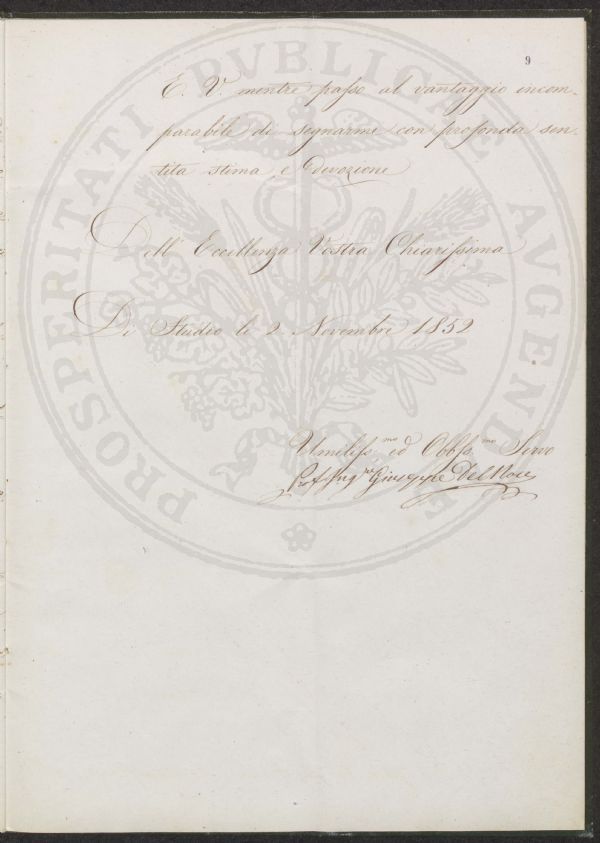 9
E. V. mentre passo al vantaggio incom-
parabile di segnarme con profonda sen-
tita stima e devozione
Dell' Eccellenza Vostra Chiarissima
Di Studio li 2. Novembre 1852
Umiliss.mo ed Obbss.mo Servo
Prof. Ing.re Giuseppe Del Noce
PROSPERITATI PVBLICAE AVGENDAE